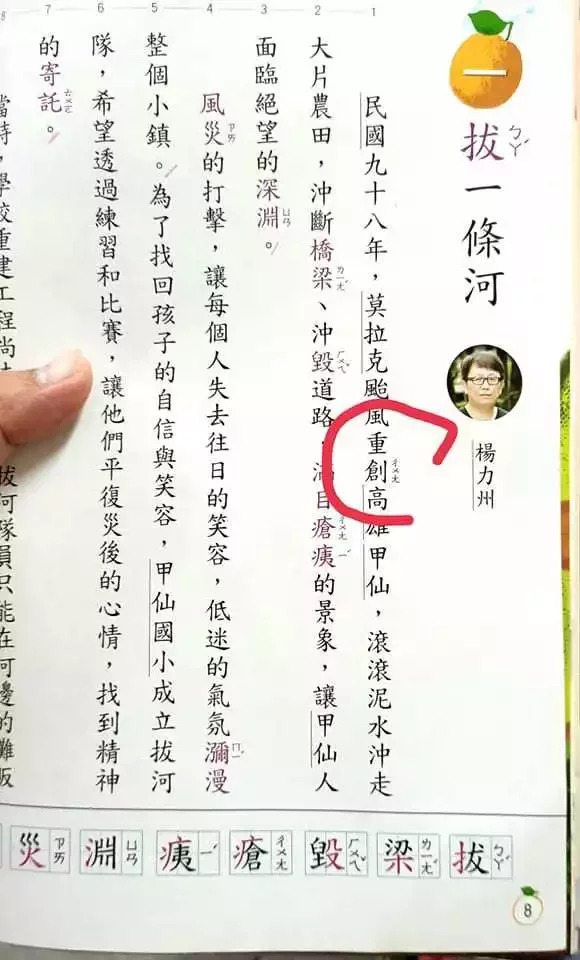 一
拔ㄅㄚˊ一條河
楊力州
1
民國九十八年，莫拉克颱風重創ㄔㄨㄤ高雄甲仙，滾滾泥水沖走
2
大片農田，沖斷橋梁ㄌㄧㄤˊ、沖毀ㄏㄨㄟˇ道路，滿目瘡ㄔㄨㄤ痍ㄧˊ的景象，讓甲仙人
3
面臨絕望的深淵ㄩㄢ。
4
風災ㄗㄞ的打擊，讓每個人失去往日的笑容，低迷的氣氛瀰ㄇㄧˊ漫
5
整個小鎮。為了找回孩子的自信與笑容，甲仙國小成立拔河
6
隊，希望透過練習和比賽，讓他們平復災後的心情，找到精神
7
的寄託ㄊㄨㄛ。
8
當時，學校重建工程尚 拔河隊員只能在河邊的攤販
拔ㄅㄚˊ
梁ㄌㄧㄤˊ
毀ㄏㄨㄟˇ
瘡ㄔㄨㄤ
痍ㄧˊ
淵ㄩㄢ
災ㄗㄞ
8